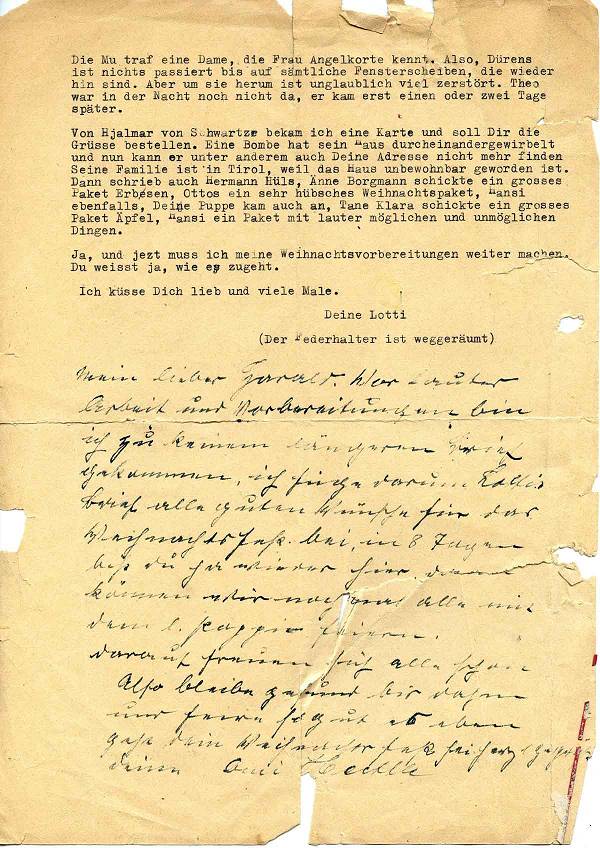 Die Mu traf eine Dame, die Frau Angelkorte kennt. Also, Dürens
ist nichts passiert bis auf sämtliche Fensterscheiben, die wieder
hin sind. Aber um sie herum ist unglaublich viel zerstört. Theo
war in der Nacht noch nicht da, er kam erst einen oder zwei Tage
später.
Von Hjalmar von Schwartze bekam ich eine Karte und soll Dir die
Grüsse bestellen. Eine Bombe hat sein Haus durcheinandergewirbelt
und nun kann er unter anderem auch Deine Adresse nicht mehr finden
Seine Familie ist in Tirol, weil das Haus unbewohnbar geworden ist.
Dann schrieb auch Hermann Hüls, Anne Borgmann schickte ein grosses
Paket Erbesen, Ottos ein sehr hübsches Weihnachtspaket, Hansi
ebenfalls, Deine Puppe kam auch an, Tane Klara schickte ein grosses
Paket Äpfel, Hansi ein Paket mit lauter möglichen und unmöglichen
Dingen.
Ja, und jezt muss ich meine Weihnachtsvorbereitungen weiter machen.
Du weisst ja, wie es zugeht.
Ich küsse Dich lieb und viele Male.
Deine Lotti
(Der Federhalter ist weggeräumt)
Mein lieber Harald. Vor lauter
Arbeit und Vorbereitungen bin
ich zu keinem längeren Brief
gekommen, ich füge darum Lottis
Brief alle guten Wünsche für das
Weihnachtsfest bei, in 8 Tagen
bist du ja wieder hier, dann
können wir nochmal alle mit
dem l. Pappi feiern.
darauf freuen sich alle schon
Also bleibe gesund bis dahin
und feire so gut es eben
geht dein Weihnachtsfest sei herzl
deine Omi